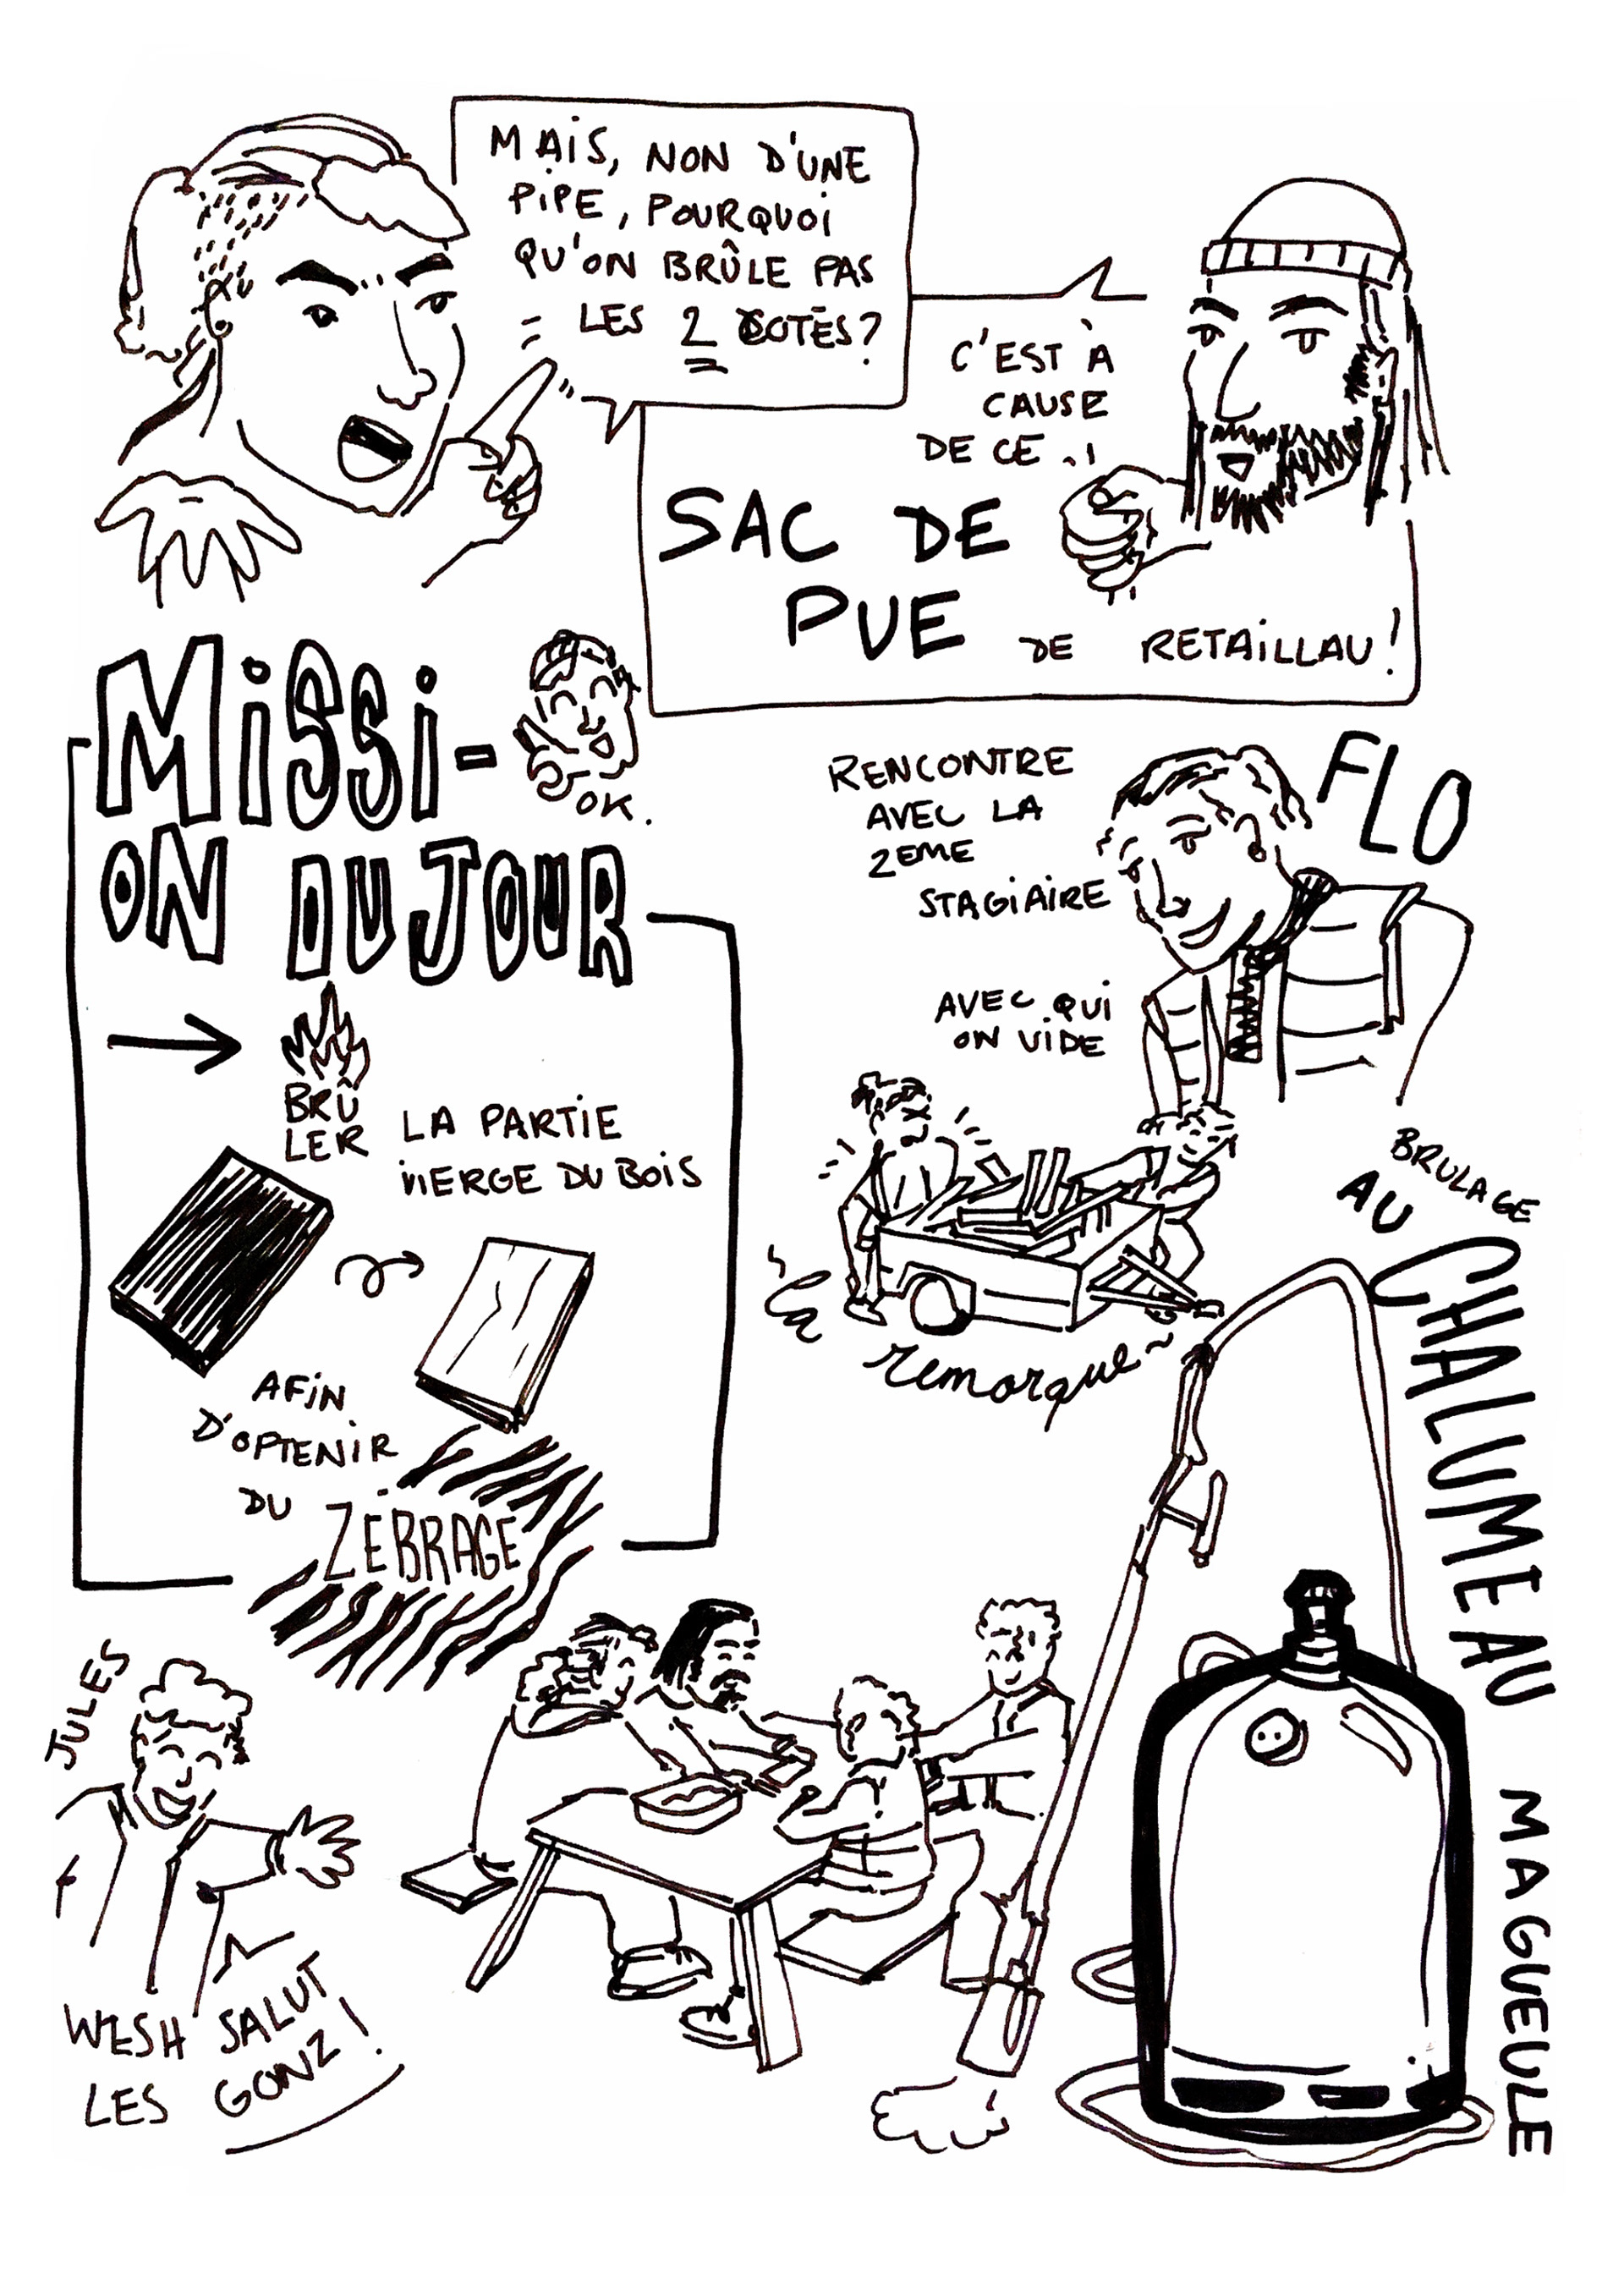 MAIS, NON D'UNE
PIPE, POURQUOI
QU'ON BRÛLE PAS
LES 2 COTÉS?
C'EST À
CAUSE
DE CE ..
SAC DE
PUE
DE RETAILLAU!
MISSI-
ON DU JOUR
OK.
BRÛ
LER
LA PARTIE
VIERGE DU BOIS
AFIN
D'OPTENIR
DU ZÉBRAGE
RENCONTRE
AVEC LA
2EME
STAGIAIRE
FLO
AVEC QUI
ON VIDE
remorque
BRULAGE
AU
CHALUMEAU
MAGUEULE
JULES
WESH SALUT
LES GONZ!